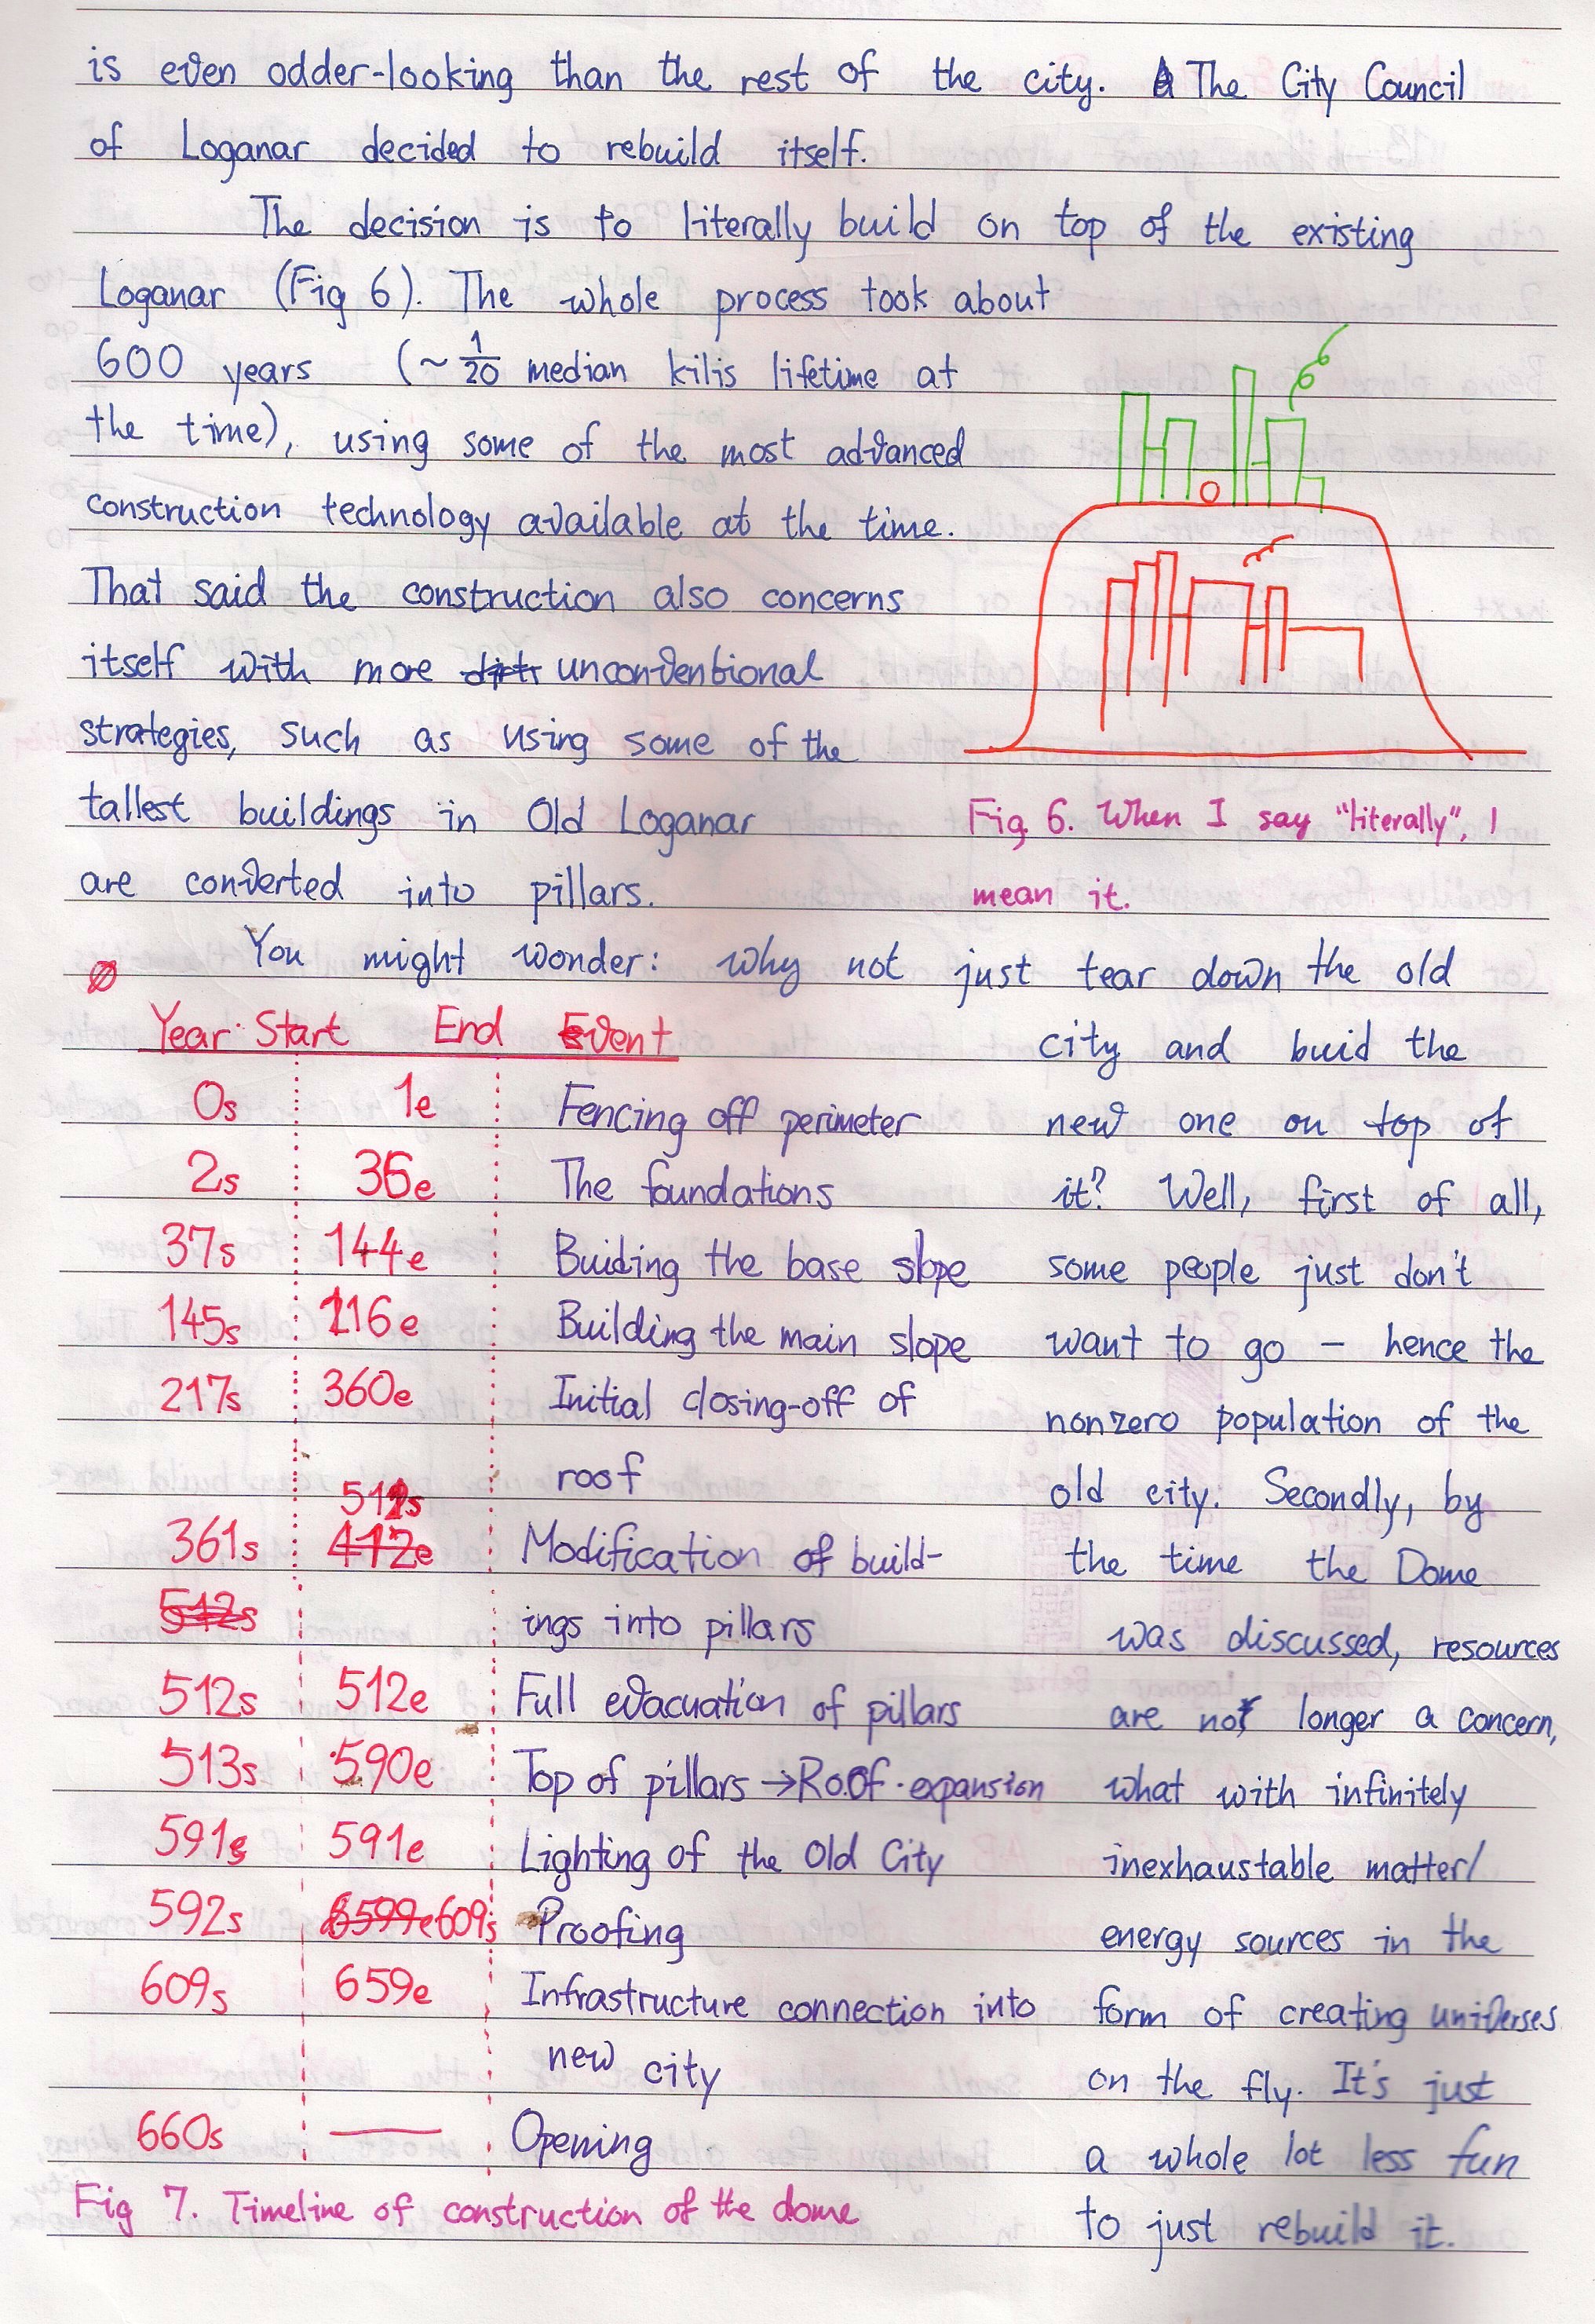 is even odder-looking than the rest of the city. The City Council
of Loganar decided to rebuild itself.
The decision is to literally build on top of the existing
Loganar (Fig 6). The whole process took about
600 years (~ 1/20 median kilis lifetime at
the time), using some of the most advanced
construction technology available at the time.
That said the construction also concerns
itself with more unconventional
strategies, such as using some of the
tallest buildings in Old Loganar
are converted into pillars.
Fig 6. When I say "literally", I
mean it.
You might wonder: why not just tear down the old
city and buid the
new one on top of
it? Well, first of all,
some people just don't
want to go – hence the
nonzero population of the
old city. Secondly, by
the time the Dome
was discussed, resources
are no longer a concern,
what with infinitely
inexhaustable matter/
energy sources in the
form of creating universes
on the fly. It's just
a whole lot less fun
to just rebuild it.
Year Start End Event
0s 1e Fencing off perimeter
2s 36e The foundations
37s 144e Buiding the base slope
145s 216e Building the main slope
217s 360e Initial closing-off of
roof
361s 412e Modification of build-
512s ings into pillars
512s 512e Full evacuation of pillars
513s 590e Top of pillars → Roof expansion
591s 591e Lighting of the Old City
592s 609s Proofing
609s 659e Infrastructure connection into
new city
660s — Opening
Fig 7. Timeline of construction of the dome